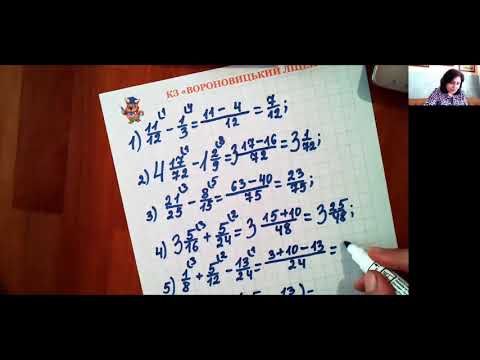 КЗ «ВОРОНОВИЦЬКИЙ ЛІЦЕ
1) 11/12 ⌞1 - 1/3 ⌞4 = (11-4)/12 = 7/12;
2) 4 17/72 ⌞1 - 1 2/9 ⌞8 = 3 (17-16)/72 = 3 1/72;
3) 21/25 ⌞3 - 8/15 ⌞5 = (63-40)/75 = 23/75;
4) 3 5/16 ⌞3 + 5/24 ⌞2 = 3 (15+10)/48 = 3 25/48;
5) 1/8 ⌞3 + 5/12 ⌞2 - 13/24 ⌞1 = (3+10-13)/24 =